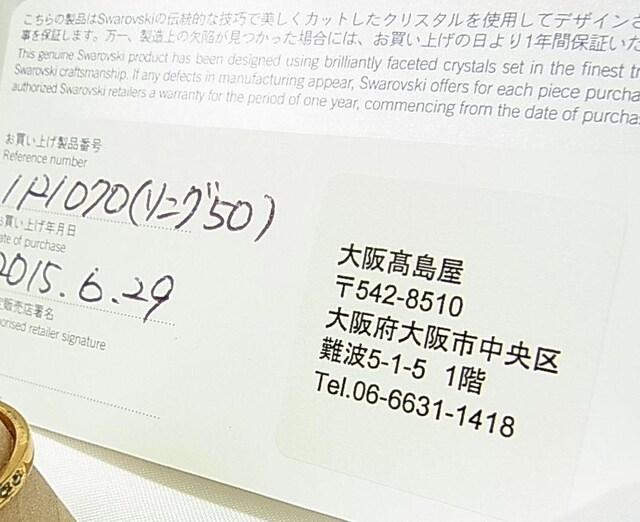 こちらの製品はSwarovskiの伝統的な技巧で美しくカットしたクリスタルを使用してデザインさ
事を保証します。万一、製造上の欠陥が見つかった場合には、お買い上げの日より1年間保証いた
This genuine Swarovski product has been designed using brilliantly faceted crystals set in the finest tr
Swarovski craftsmanship. If any defects in manufacturing appear, Swarovski offers for each piece purcha
authorized Swarovski retailers a warranty for the period of one year, commencing from the date of purchas
お買い上げ製品番号
Reference number
(リング50)
お買い上げ年月日
ate of purchase
2015.6.29
販売店署名
orised retailer signature
大阪髙島屋
〒542-8510
大阪府大阪市中央区
難波5-1-5 1階
Tel.06-6631-1418